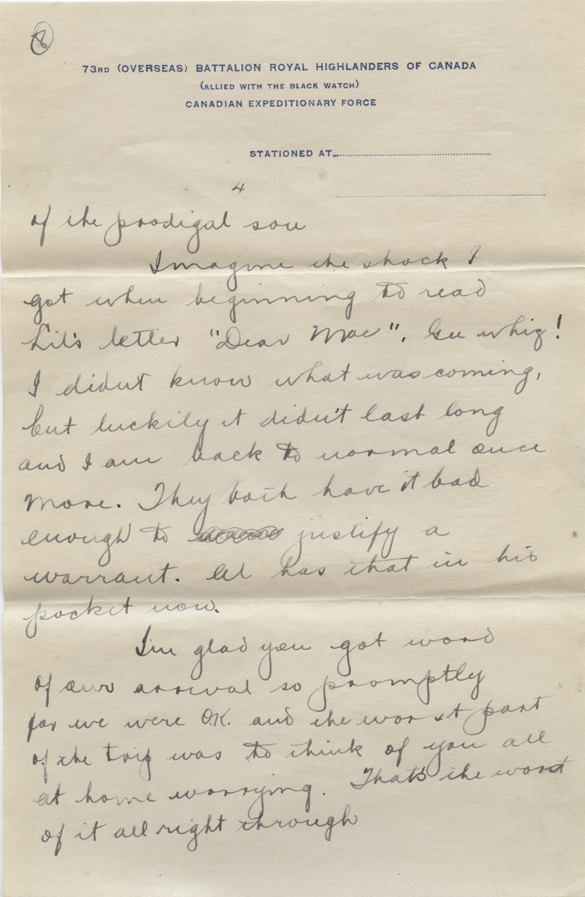 8
73RD (OVERSEAS) BATTALION ROYAL HIGHLANDERS OF CANADA
(ALLIED WITH THE BLACK WATCH)
CANADIAN EXPEDITIONARY FORCE
STATIONED AT
4
of the prodigal son
Imagine the shock I
got when beginning to read
Lil's letter "Dear Mac". Gee whiz!
I didnt know what was coming,
but luckily it didn't last long
and I am back to normal once
more. They both have it bad
enough to justify a
warrant. Al has that in his
pocket now.
I'm glad you got word
of our arrival so promptly
for we were OK. and the worst part
of the trip was to think of you all
at home worrying. That's the worst
of it all right through